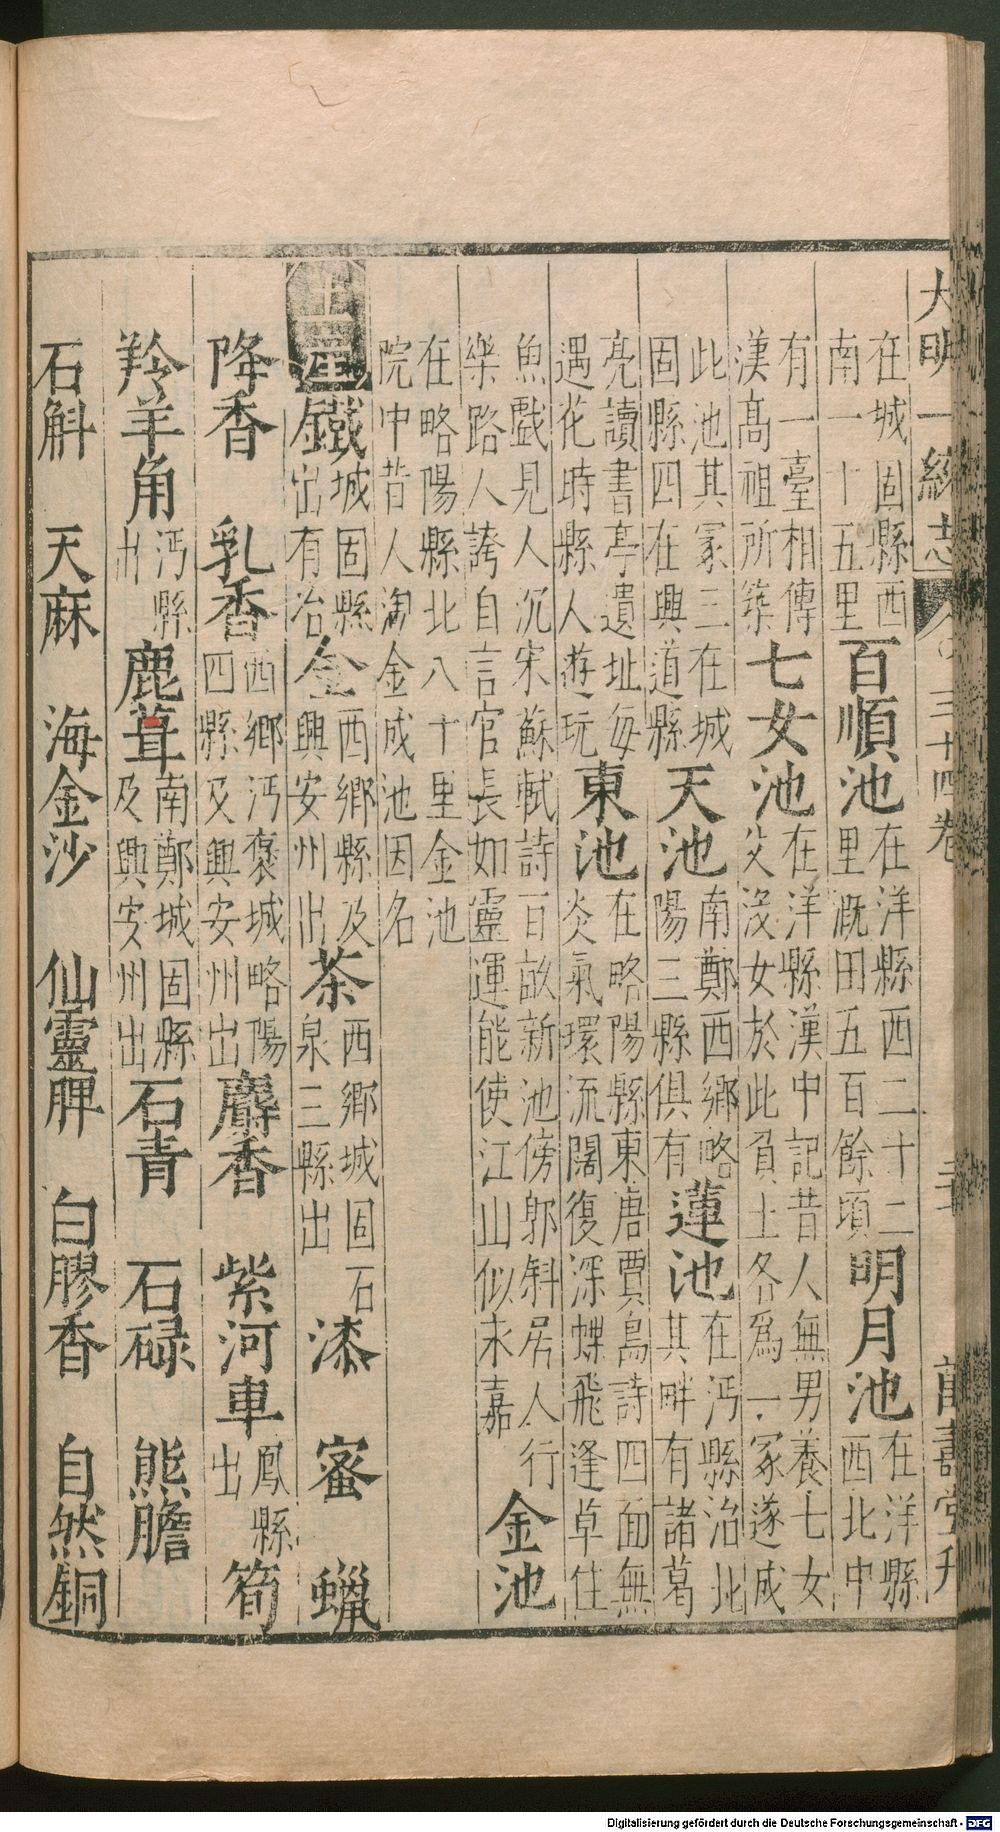 大明一統志 三十四卷 二十
在城固縣西
南一十五里百順池在洋縣西二十二
里溉田五百餘頃明月池在洋縣
西北中
有一臺相傳
漢高祖所築七女池在洋縣漢中記昔人無男養七女
父沒女於此負土各爲一冢遂成
此池其冢三在城
固縣四在興道縣天池南鄭西鄉略
陽三縣俱有蓮池在沔縣治北
其畔有諸葛
亮讀書亭遺址每
遇花時縣人遊玩東池在略陽縣東唐賈島詩四面無
炎氣環流闊復深蝶飛逢草住
魚戲見人沉宋蘇軾詩百畝新池傍郭斜居人行
樂路人誇自言官長如靈運能使江山似永嘉金池
在略陽縣北八十里金池
院中昔人淘金成池因名
土產鐵城固縣
出有冶金西鄉縣及
興安州出茶西鄉城固石
泉三縣出漆 蜜 蠟
降香 乳香西鄉沔褒城略陽
四縣及興安州出麝香 紫河車鳳縣
出筍
羚羊角沔縣
出鹿茸南鄭城固縣
及興安州出石青 石碌 熊膽
石斛 天麻 海金沙 仙靈脾 白膠香 自然銅
Digitalisierung gefördert durch die Deutsche Forschungsgemeinschaft - DFG